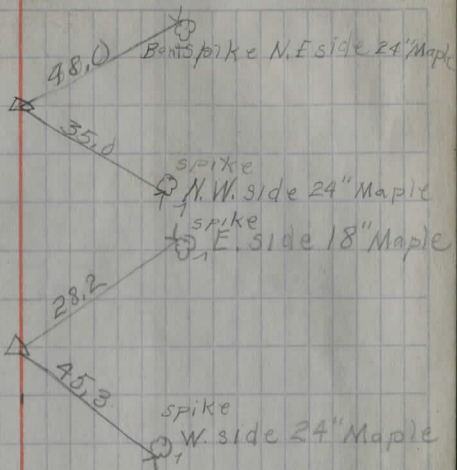 48.0
Bent spike N.E side 24" Maple
35.0
spike
N.W. side 24" Maple
spike
E. side 18" Maple
28.2
45.3
spike
W. side 24" Maple